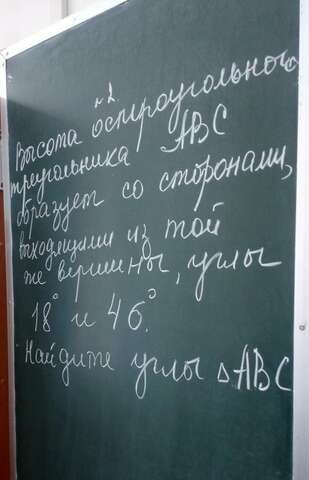 №2
Высота остроугольного
треугольника ABC
образует со сторонами,
выходящими из той
же вершины, углы
18° и 46°.
Найдите углы △ABC